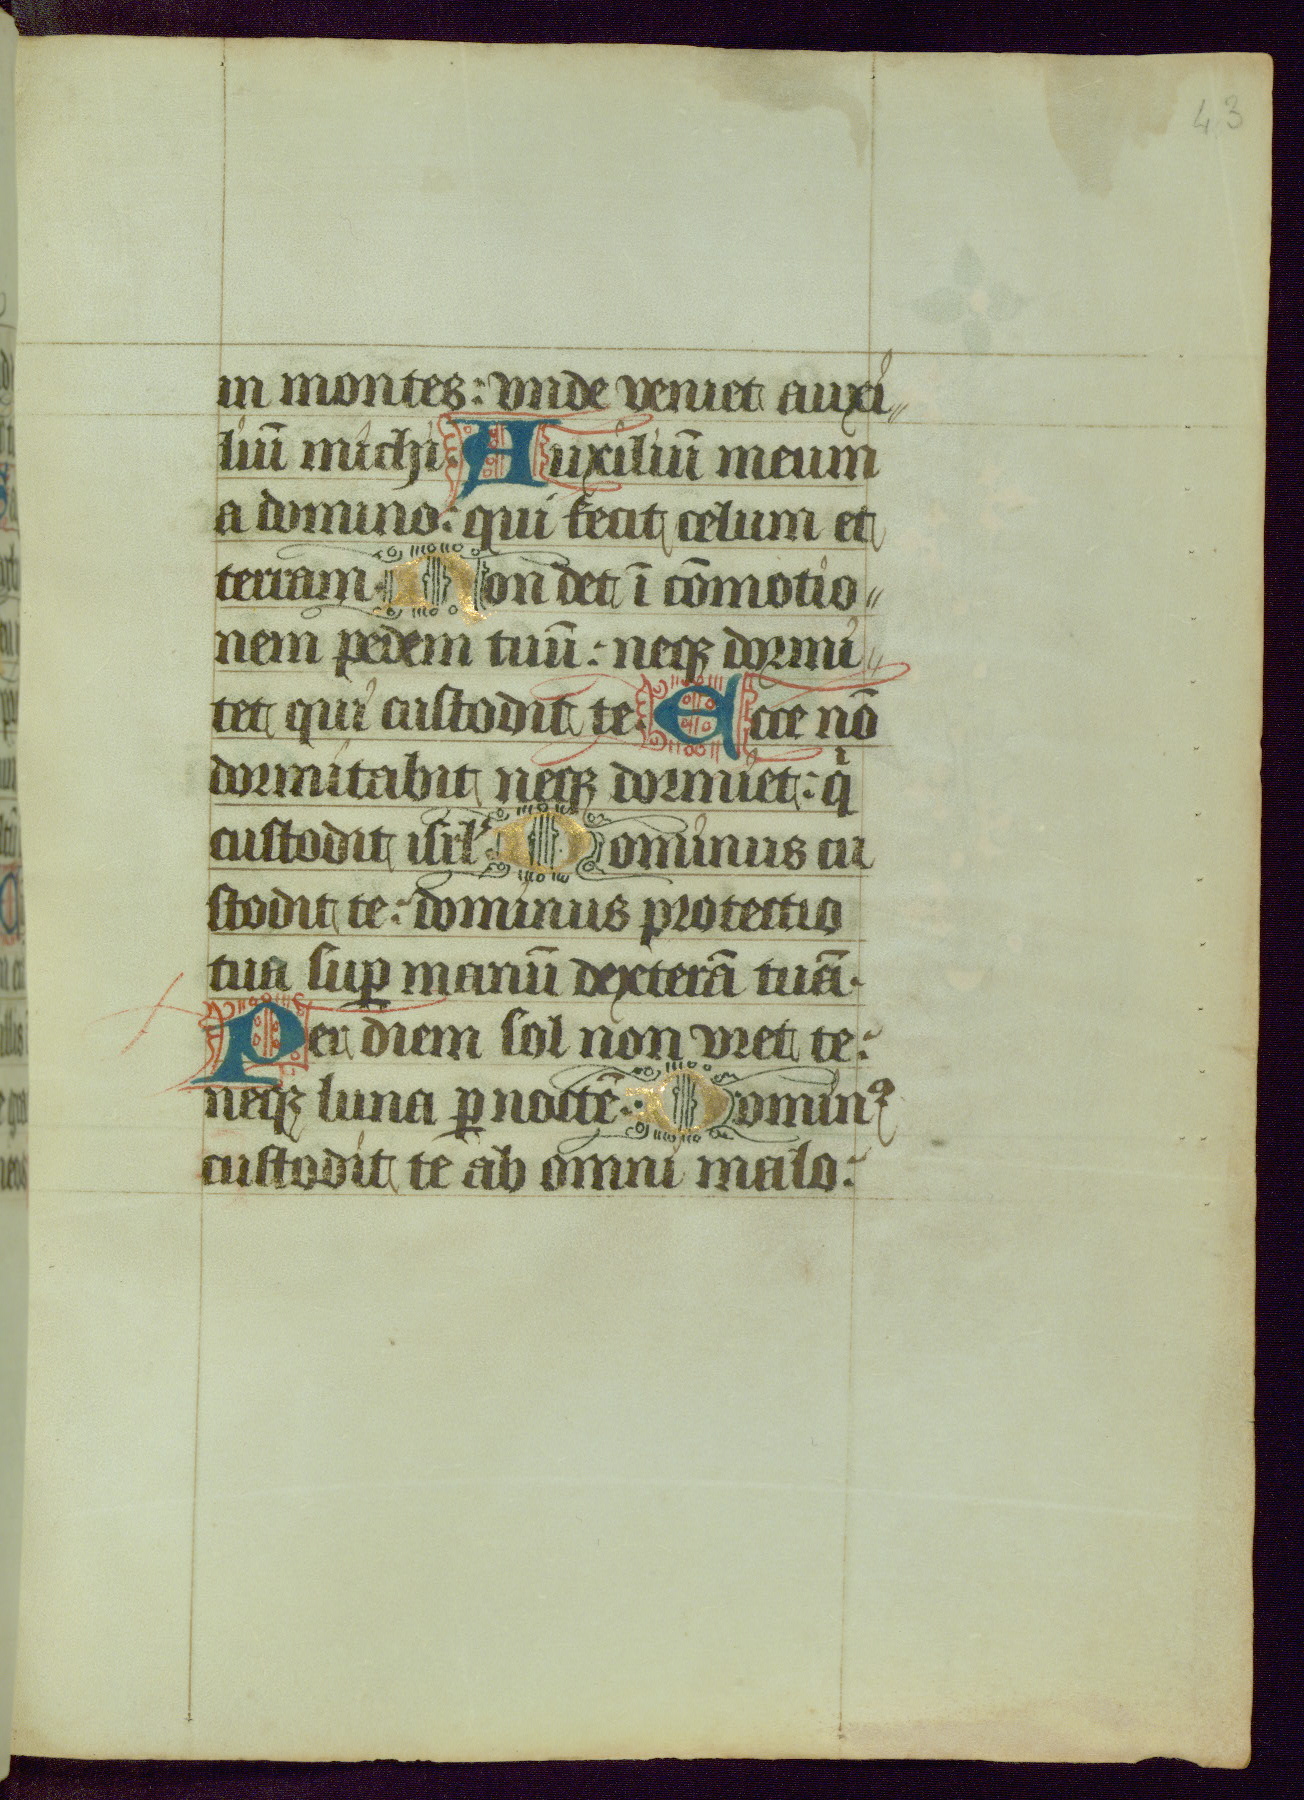 43
in montes: vnde veniet auxi//
liū michi. Auxiliū meum
a domino: qui fecit celum et
terram. Non det ī cōmotio//
nem pedem tuū: neqꝫ dormi//
tet qui custodit te. Ecce nō
dormitabit neqꝫ dormiet: qͥ
custodit isrl'. Dominus cu
stodit te: dominus protectio
tua suꝑ manū dexterā tuā.
Per diem sol non vret te:
neqꝫ luna ꝑ noctē. Dominꝰ
custodit te ab omni malo: